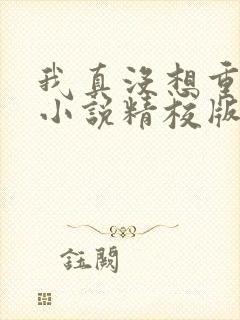 我真没想重
小说精校版
註闕